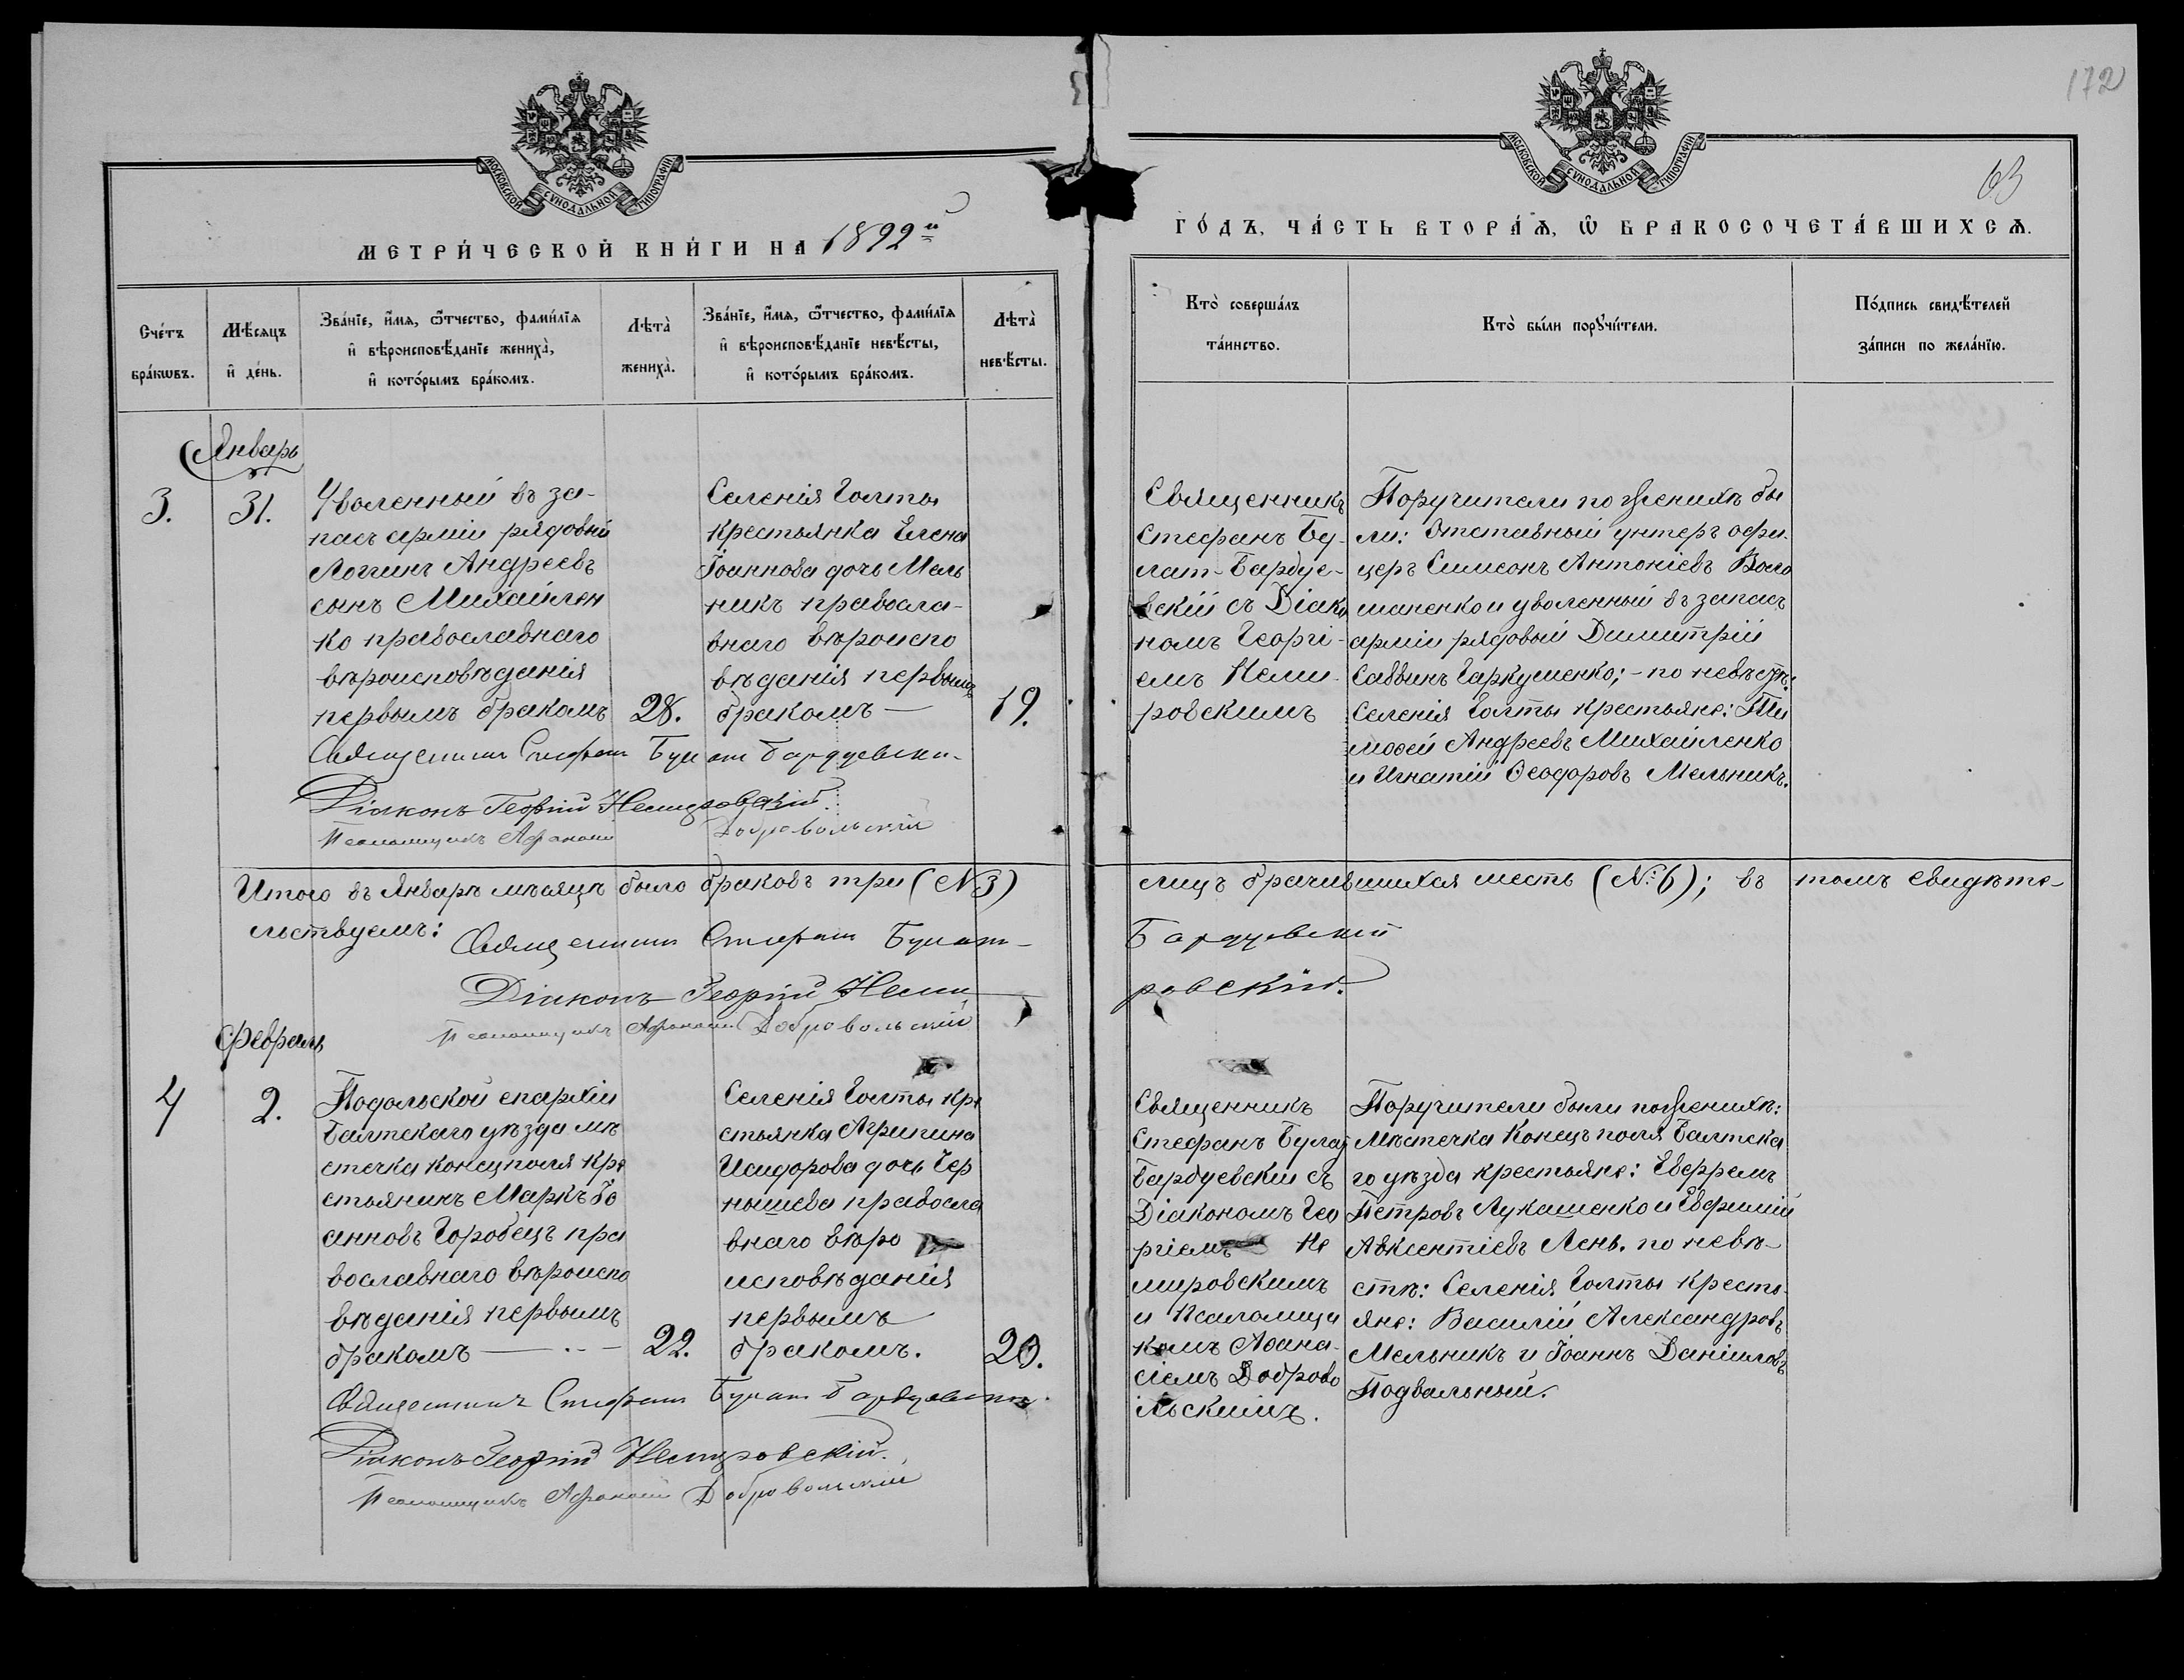 172
63
МОСКОВСКОЙ СѴНОДАЛЬНОЙ ТИПОГРАФІИ
МОСКОВСКОЙ СѴНОДАЛЬНОЙ ТИПОГРАФІИ
МЕТРИ́ЧЕСКОЙ КНИ́ГИ НА 1892й
ГО́ДЪ, ЧА́СТЬ ВТОРА́Ѧ, Ѡ҆ БРАКОСОЧЕТА́ВШИХСѦ.
Сче́тъ
бра́кѡвъ.
Мѣ́сяцъ
и҆ де́нь.
Зва́нїе, и҆́мѧ, ѻ҆́тчество, фами́лїѧ
и҆ вѣроисповѣ́данїе жениха̀,
и҆ кото́рымъ бра́комъ.
Лѣта̀
жениха̀.
Зва́нїе, и҆́мѧ, ѻ҆́тчество, фами́лїѧ
и҆ вѣроисповѣ́данїе невѣ́сты,
и҆ кото́рымъ бра́комъ.
Лѣта̀
невѣ́сты.
Кто̀ соверша́лъ
та́инство.
Кто̀ бы́ли порꙋчи́тели.
По́дпись свидѣ́телей
за́писи по жела́нїю.
Январь
3.
31.
Уволенный въ за-
пасъ арміи рядовый
Логгинъ Андреевъ
сынъ Михайлен
ко православнаго
вѣроисповѣданія
первымъ бракомъ
28.
Селенія Голты
крестьянка Елена
Іоаннова дочь Мель
никъ правосла-
внаго вѣроиспо
вѣданія первымъ
бракомъ —
19.
Священникъ
Стефанъ Бу-
лат-Бардуе-
вскій съ Діако
номъ Георгі-
емъ Неми-
ровскимъ
Поручители по женихѣ бы
ли: Отставный унтеръ офи-
церъ Симеонъ Антоніевъ Воло
шаненко и уволенный въ запасъ
арміи рядовый Димитрій
Саввинъ Гаркушенко; - по невѣстѣ:
Селенія Голты крестьяне: Ти
моѳей Андреевъ Михайленко
и Игнатій Ѳеодоровъ Мельникъ.
Священникъ Стефанъ Булат Бардуевскій.
Діаконъ Георгій Немировскій.
Псаломщикъ Афанасій Добровольскій
Итого въ Январѣ мѣсяцѣ было браковъ три (№ 3) лицъ брачившихся шесть (№ 6); въ томъ свидѣте-
льствуемъ:
Священникъ Стефанъ Булат- Бардуевскій
Діаконъ Георгій Неми- ровскій.
Псаломщикъ Афанасій Добровольскій
Февраль
4
2.
Подольской епархіи
Балтскаго уѣзда мѣ
стечка Конецполя кре
стьянинъ Маркъ Іо
анновъ Горобецъ пра
вославнаго вѣроиспо
вѣданія первымъ
бракомъ —
22.
Селенія Голты кре
стьянка Агрипина
Исидорова дочь Чер
нышева правосла
внаго вѣро
исповѣданія
первымъ
бракомъ.
20.
Священникъ
Стефанъ Булат
Бардуевскій съ
Діакономъ Гео
ргіемъ Не
мировскимъ
и Псаломщи
комъ Аѳана-
сіемъ Доброво
льскимъ.
Поручители были по женихѣ:
Мѣстечка Конецъ поля Балтска
го уѣзда крестьяне: Ефремъ
Петровъ Лукашенко и Евфимій
Авксентіевъ Лень. по невѣ-
стѣ: Селенія Голты кресть-
яне: Василій Александровъ
Мельникъ и Іоаннъ Даніиловъ
Подвальный.
Священникъ Стефанъ Булат Бардуевскій.
Діаконъ Георгій Немировскій.
Псаломщикъ Афанасій Добровольскій